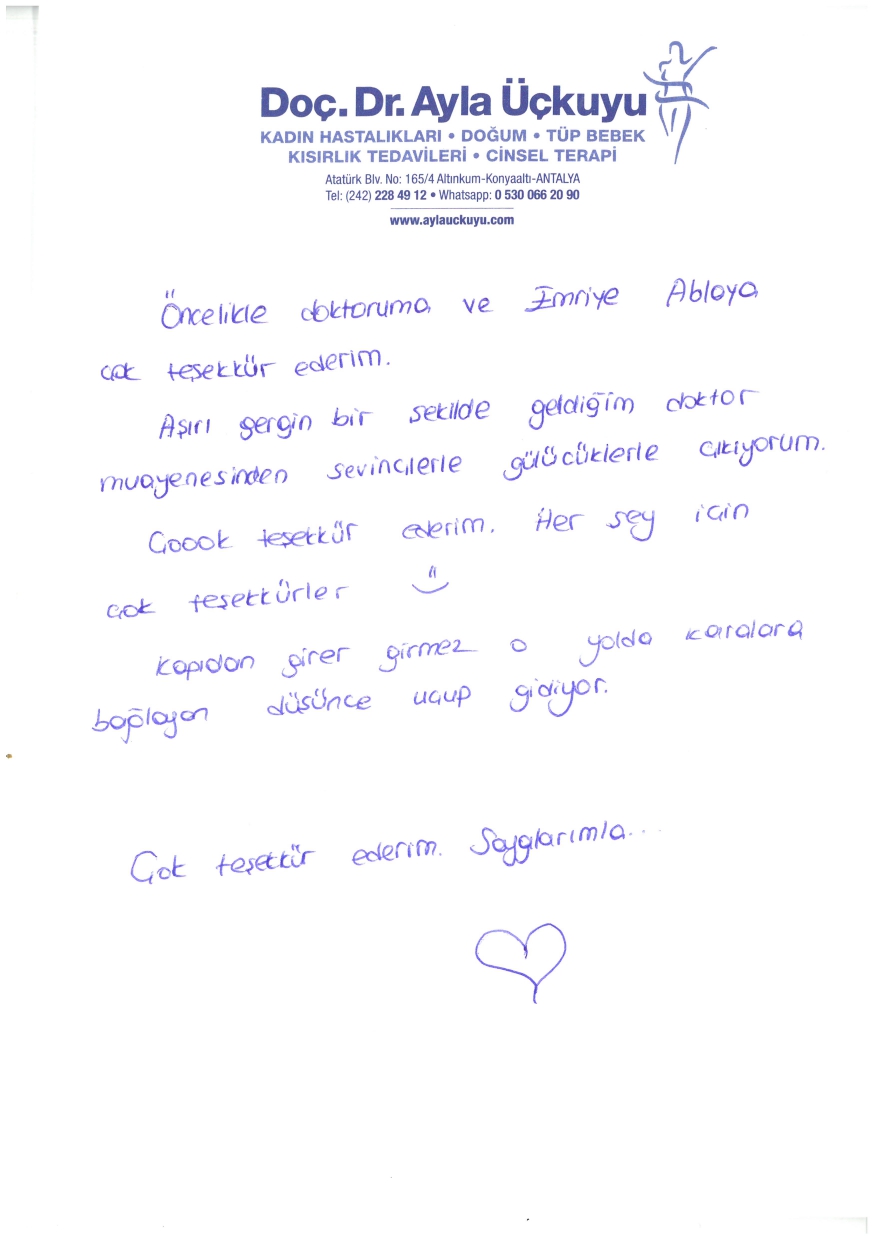 Doç. Dr. Ayla Üçkuyu
KADIN HASTALIKLARI • DOĞUM • TÜP BEBEK
KISIRLIK TEDAVİLERİ • CİNSEL TERAPİ
Atatürk Blv. No: 165/4 Altınkum-Konyaaltı-ANTALYA
Tel: (242) 228 49 12 • Whatsapp: 0 530 066 20 90
www.aylauckuyu.com
Öncelikle doktoruma ve İmriye Ablaya
çok teşekkür ederim.
Aşırı gergin bir sekilde geldiğim doktor
muayenesinden sevinçlerle gülücüklerle çıkıyorum.
Çoook teşekkür ederim. Her sey için
çok teşekkürler
Kapıdan girer girmez o yolda karalara
bağlayan düsünce uçup gidiyor.
Çok teşekkür ederim. Saygılarımla...